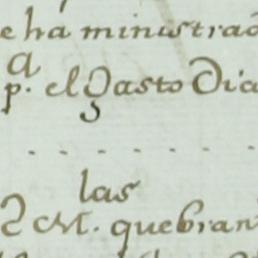 e ha ministrad
pª. el gasto Dia
las
2 M. quebran